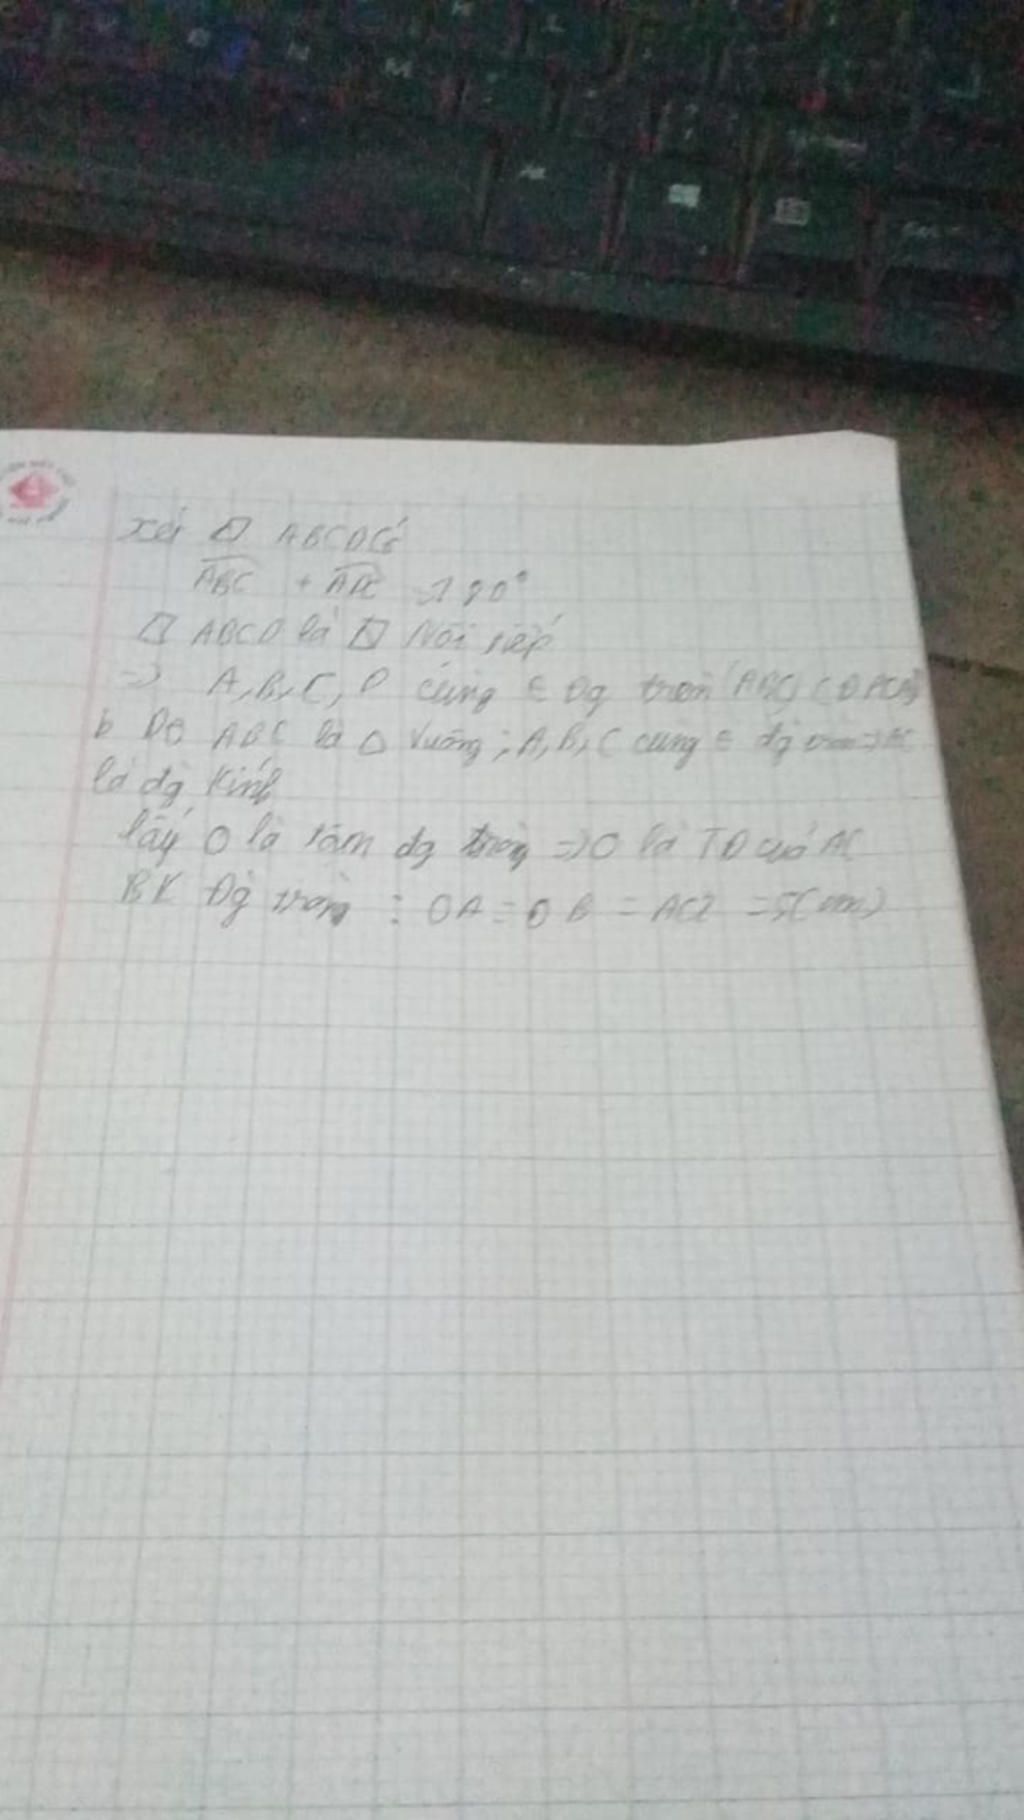 xét ▱ ABCD Có
ABC + ADC = 180°
▱ ABCD là ▱ Nội tiếp
=> A, B, C, D cùng ∈ Đg tròn (ABC)
b Do ABC là △ Vuông; A, B, C cùng ∈ đg => AC
là đg kính
lấy O là tâm đg tròn => O là TĐ của AC
BK Đg tròn : OA = OB = AC2 = 5(cm)